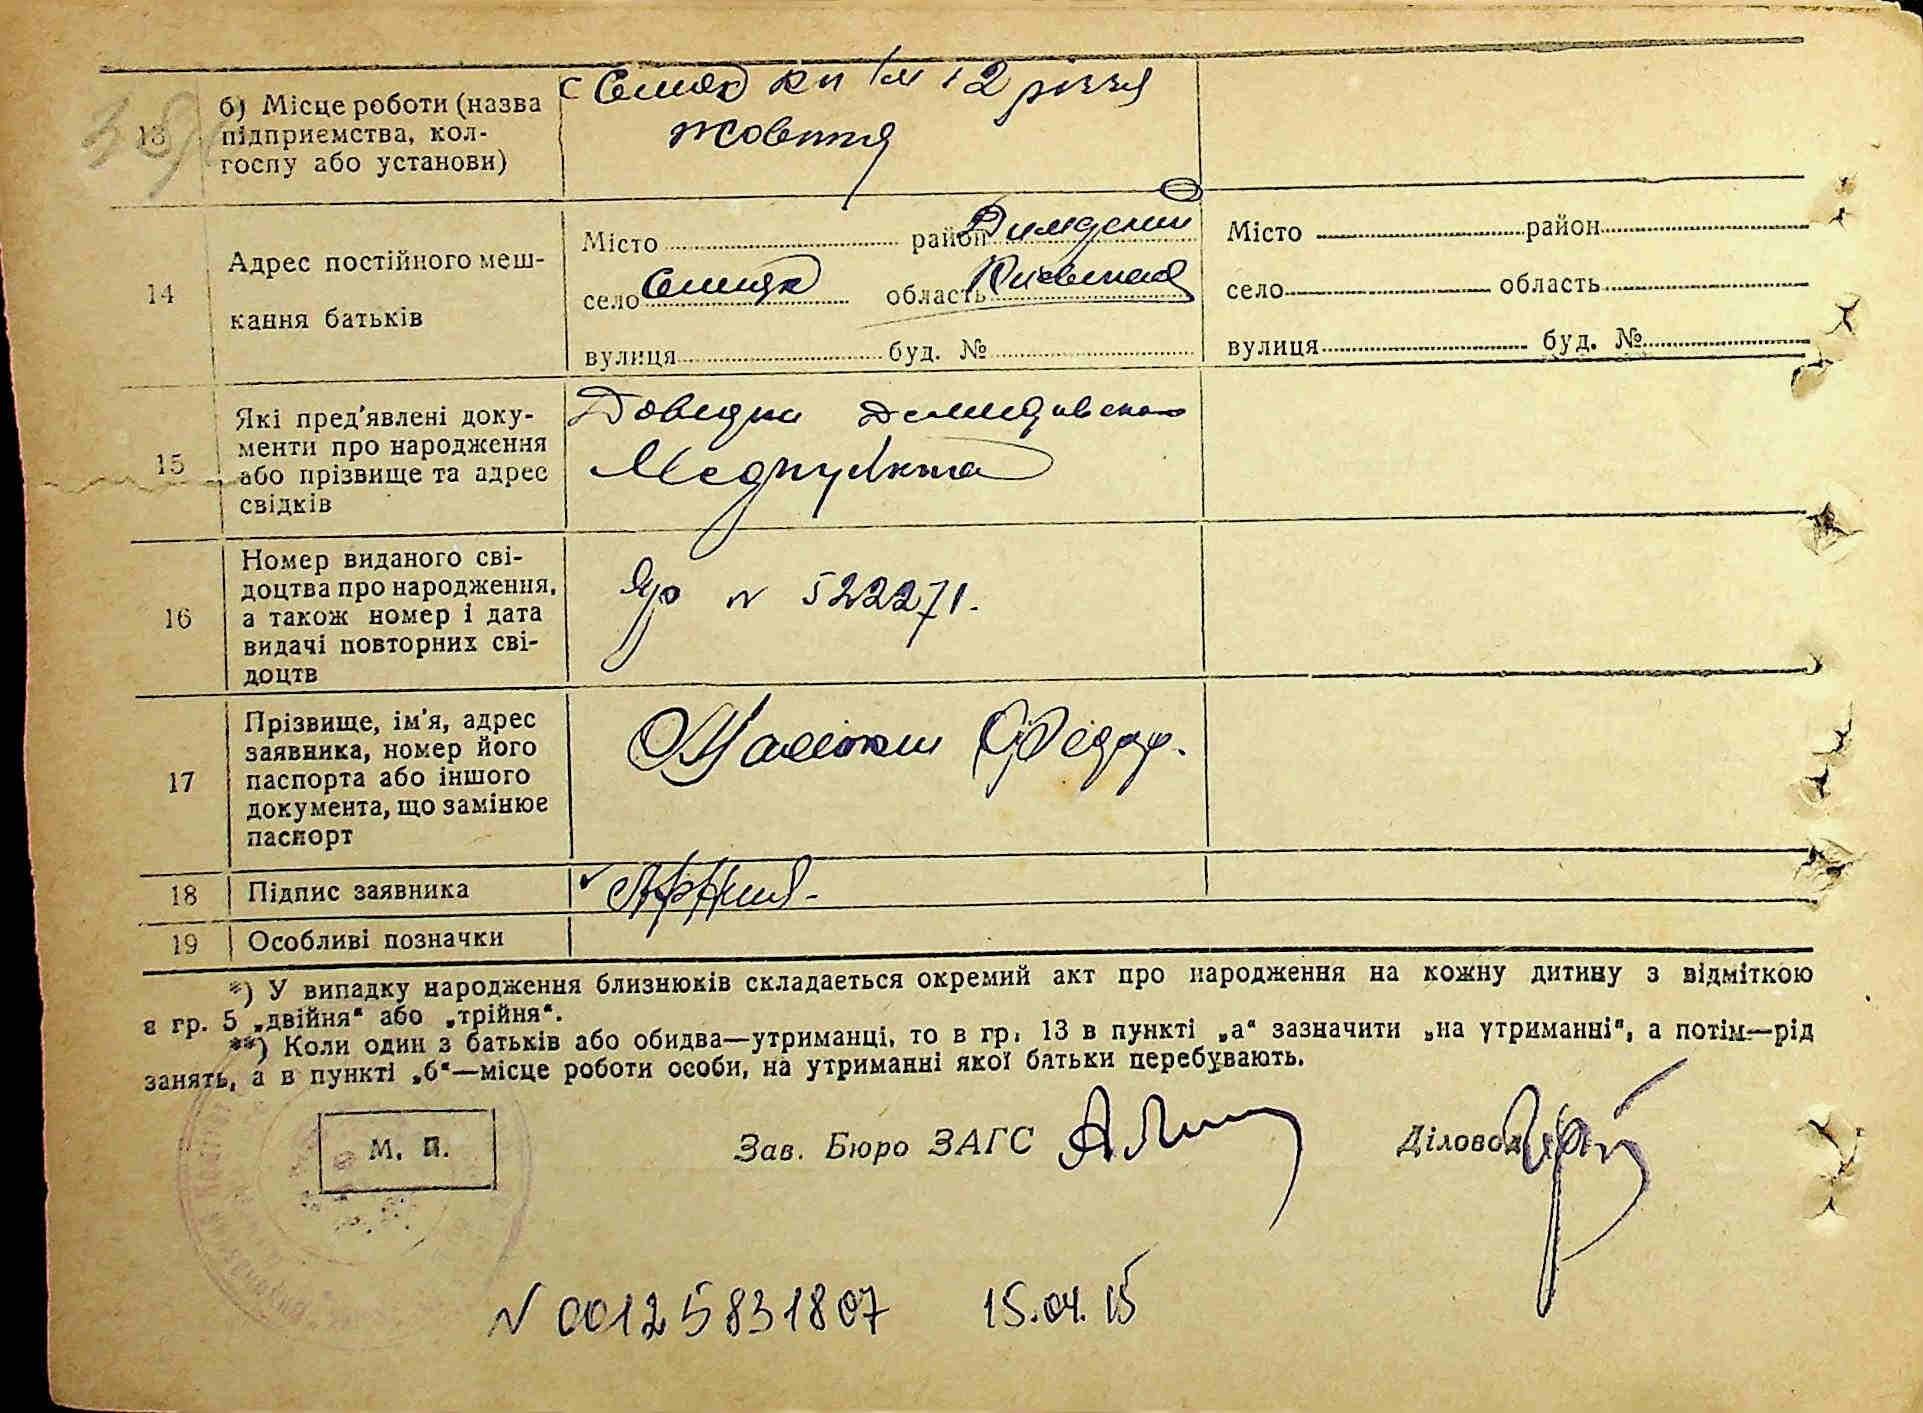 13
б) Місце роботи (назва
підприємства, кол-
госпу або установи)
12 річчя
жовтня
14
Адрес постійного меш-
кання батьків
Місто район
село область
вулиця буд. №
Місто район
село область
вулиця буд. №
15
Які пред'явлені доку-
менти про народження
або прізвище та адрес
свідків
Довідки
Медпункта
16
Номер виданого сві-
доцтва про народження,
а також номер і дата
видачі повторних сві-
доцтв
N 522271.
17
Прізвище, ім'я, адрес
заявника, номер його
паспорта або іншого
документа, що замінює
паспорт
18
Підпис заявника
19
Особливі позначки
*) У випадку народження близнюків складається окремий акт про народження на кожну дитину з відміткою
в гр. 5 „двійня“ або „трійня“.
**) Коли один з батьків або обидва—утриманці, то в гр. 13 в пункті „а“ зазначити „на утриманні“, а потім—рід
занять, а в пункті „б“—місце роботи особи, на утриманні якої батьки перебувають.
М. П.
Зав. Бюро ЗАГС
Діловод
N 00125831807 15.04.15